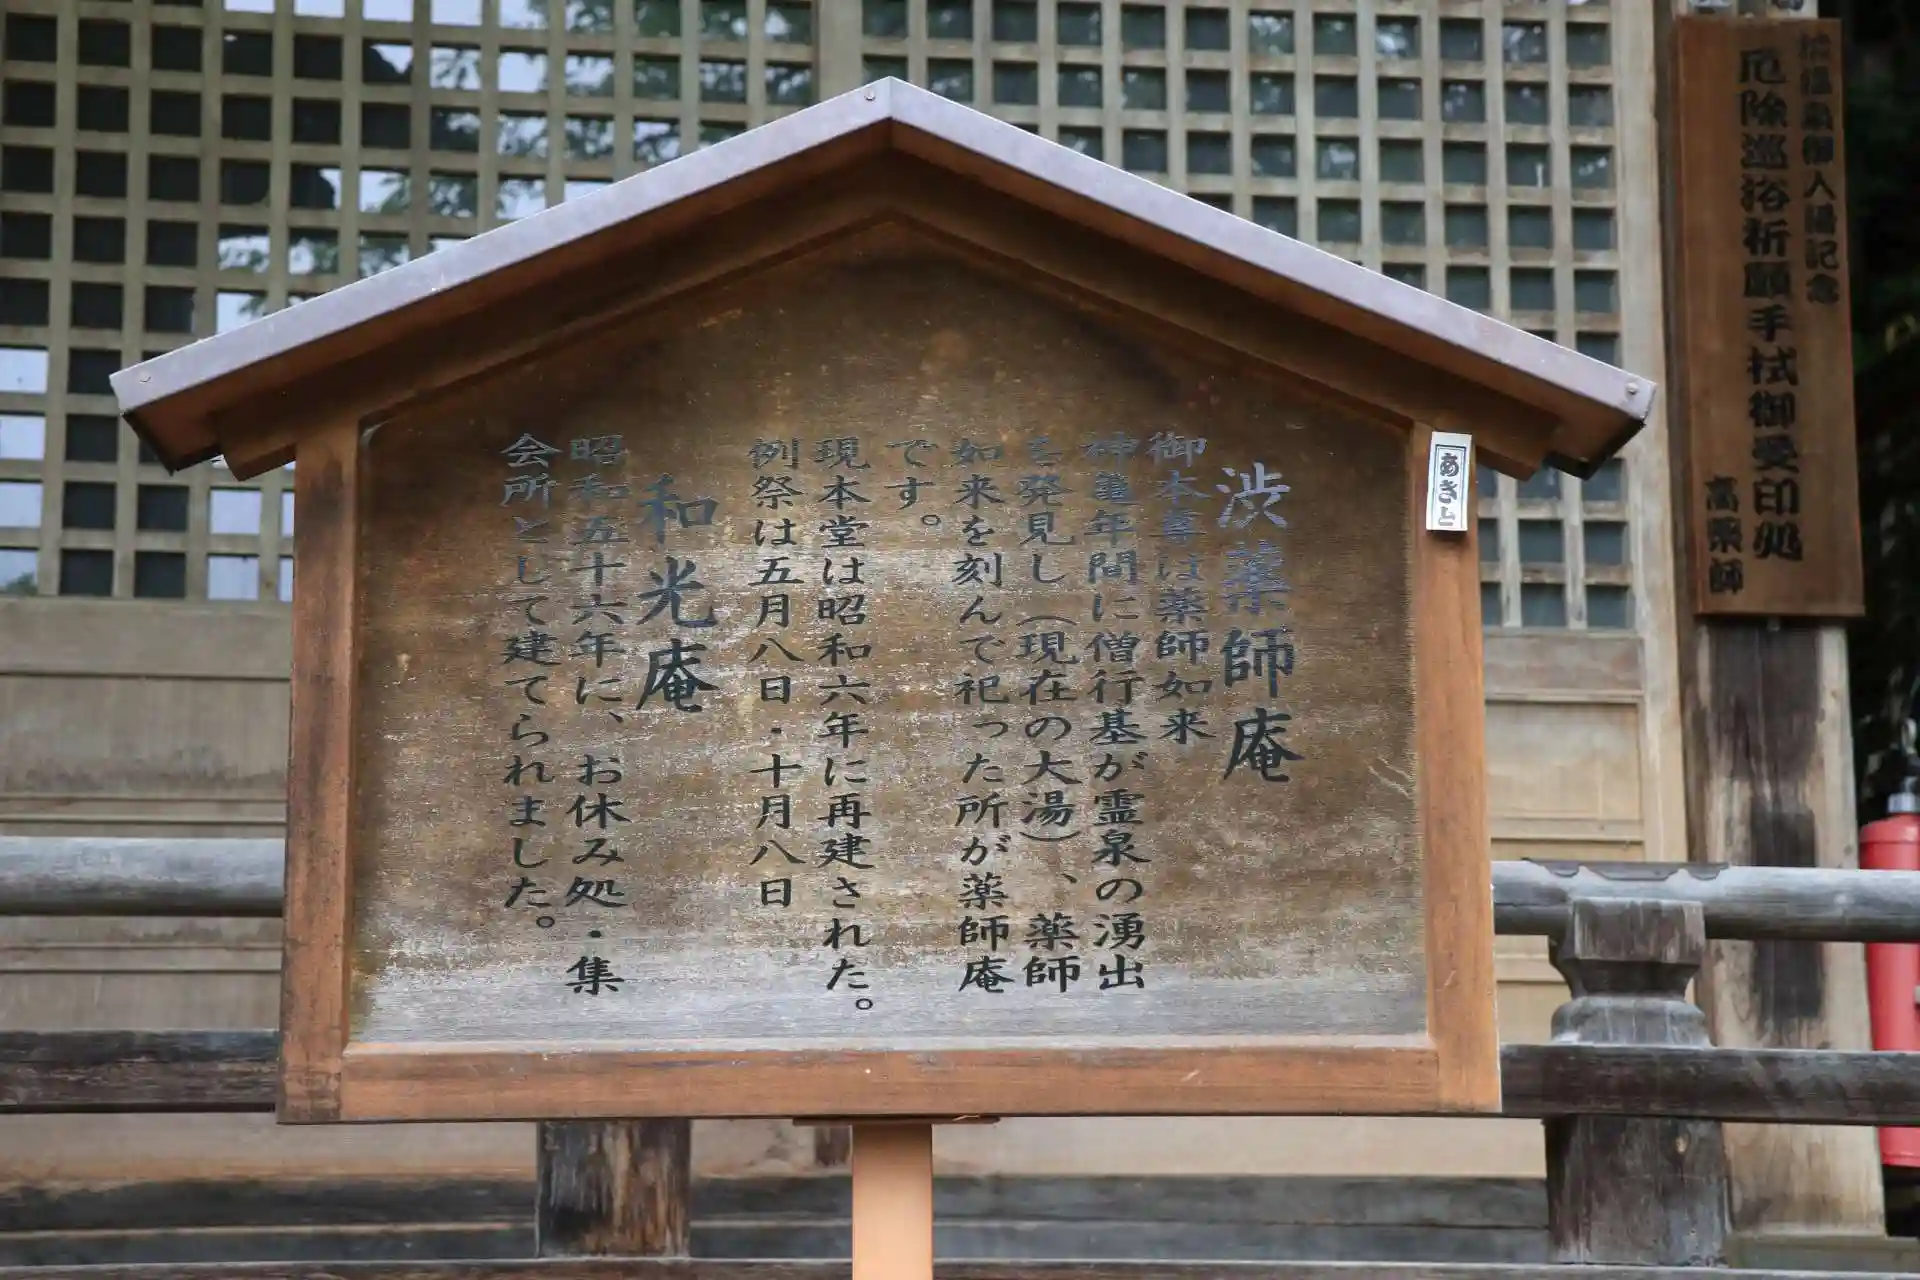 渋薬師庵
御本尊は薬師如来
神亀年間に僧行基が霊泉の湧出
を発見し（現在の大湯）、薬師
如来を刻んで祀った所が薬師庵
です。
現本堂は昭和六年に再建された。
例祭は五月八日・十月八日
和光庵
昭和五十六年に、お休み処・集
会所として建てられました。
あきと
渋温泉御入湯記念
厄除巡浴祈願手拭御受印処
高薬師